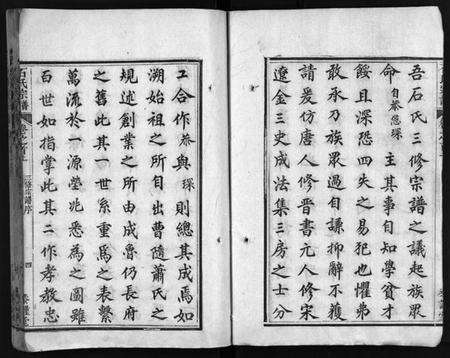 吾石氏三修宗譜之議起族眾
命自 琛 主其事自知學貧才
餒且深恐四失之易犯也懼弗
敢承乃族眾過自謙抑辭不獲
請爰仿唐人修晉書元人修宋
遼金三史成法集三房之士分
工合作 與琛則總其成焉如
溯始祖之所自出曹隨蕭氏之
規述創業之所由成魯仍長府
之舊此其一世系重為之表繫
萬流於一源塋兆悉為之圖雖
百世如指掌此其二作孝教忠
石氏宗譜
三修宗譜序
四